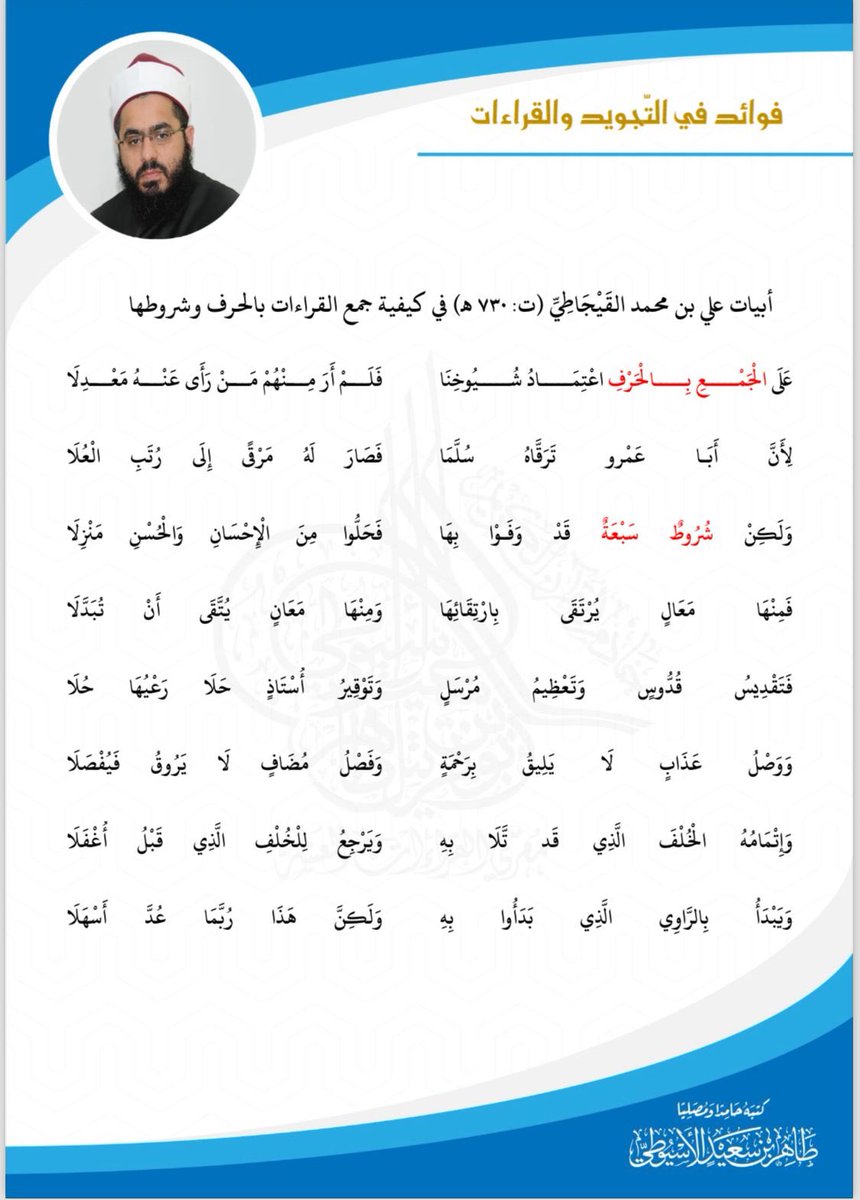 فوائد في التّجويد والقراءات
أبيات علي بن محمد القَيْجَاطِيِّ (ت: ٧٣٠ هـ) في كيفية جمع القراءات بالحرف وشروطها
عَلَى الْجَمْعِ بِالْحَرْفِ اعْتِمَادُ شُيُوخِنَا فَلَمْ أَرَ مِنْهُمْ مَنْ رَأَى عَنْهُ مَعْدِلَا
لِأَنَّ أَبَا عَمْرو تَرَقَّاهُ سُلَّمَا فَصَارَ لَهُ مَرْقًى إِلَى رُتَبِ الْعُلَا
وَلَكِنْ شُرُوطٌ سَبْعَةٌ قَدْ وَفَوْا بِهَا فَحَلُّوا مِنَ الْإِحْسَانِ وَالْحُسْنِ مَنْزِلَا
فَمِنْهَا مَعَالٍ يُرْتَقَى بِارْتِقَائِهَا وَمِنْهَا مَعَانٍ يُتَّقَى أَنْ تُبَدَّلَا
فَتَقْدِيسُ قُدُّوسٍ وَتَعْظِيمُ مُرْسَلٍ وَتَوْقِيرُ أُسْتَاذٍ حَلَا رَعْيُهَا حُلَا
وَوَصْلُ عَذَابٍ لَا يَلِيقُ بِرَحْمَةٍ وَفَصْلُ مُضَافٍ لَا يَرُوقُ فَيُفْصَلَا
وَإِتْمَامُهُ الْخُلْفَ الَّذِي قَد تَّلَا بِهِ وَيَرْجِعُ لِلْخُلْفِ الَّذِي قَبْلُ أُغْفَلَا
وَيَبْدَأُ بِالرَّاوِي الَّذِي بَدَأُوا بِهِ وَلَكِنَّ هَذَا رُبَّمَا عُدَّ أَسْهَلَا
كتبه حامدا ومصليا
طاهر بن سعيد الأسيوطي